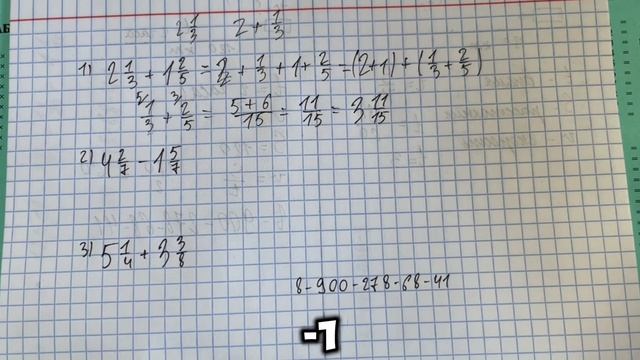 2 1/3 2 + 1/3
1) 2 1/3 + 1 2/5 = 2 + 1/3 + 1 + 2/5 = (2+1) + (1/3 + 2/5)
5/ 1/3 + 3/ 2/5 = 5+6/15 = 11/15 = 3 11/15
2) 4 2/7 - 1 5/7
3) 5 1/4 + 3 3/8
8-900-278-68-41
-1